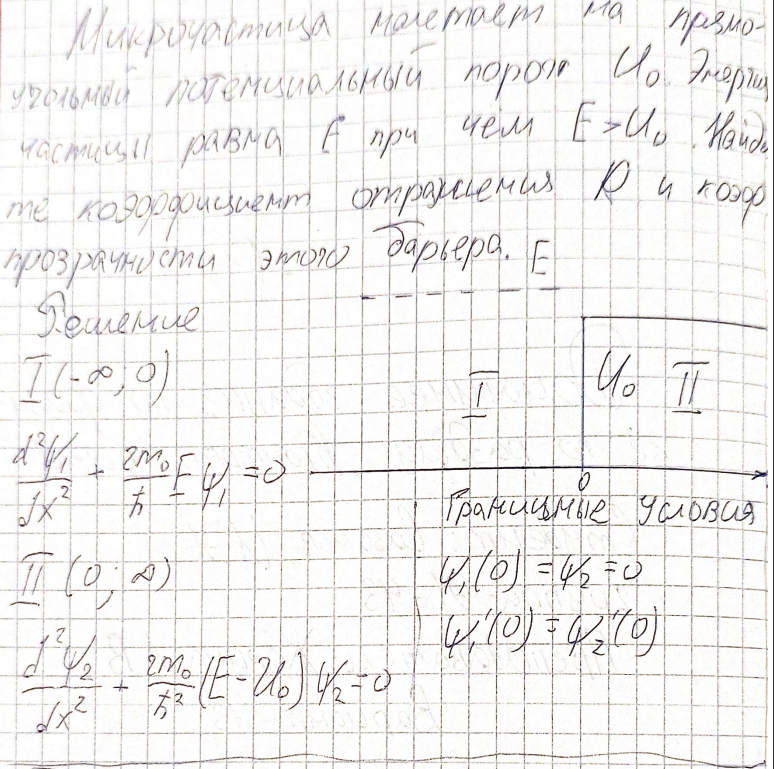 Микрочастица налетает на прямо-
угольный потенциальный порог U₀. Энергия
частицы равна E при чем E > U₀. Найди
те коэффициент отражения R и коэф
прозрачности этого барьера.
E
Решение
I (-∞, 0)
I
U₀ II
d²ψ₁/dx² + 2m₀/ħ E ψ₁ = 0
0
Граничные условия
II (0; ∞)
ψ₁(0) = ψ₂ = 0
ψ₁'(0) = ψ₂'(0)
d²ψ₂/dx² + 2m₀/ħ² (E - U₀) ψ₂ = 0